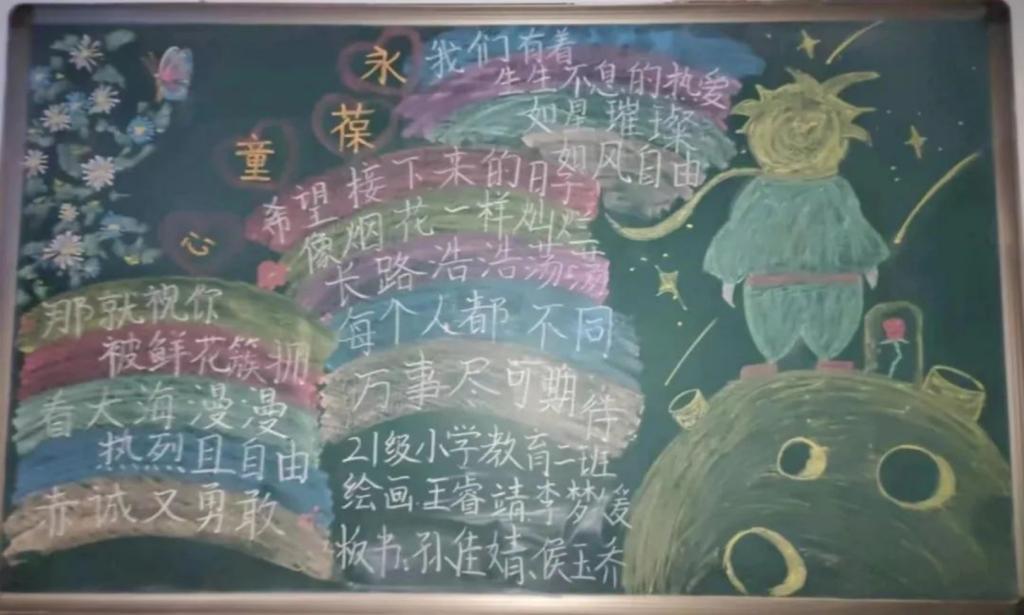 永葆童心
我们有着
生生不息的热爱
如星璀璨
如风自由
希望接下来的日子
像烟花一样灿烂
长路浩浩荡荡
每个人都不同
万事尽可期待
那就祝你
被鲜花簇拥
看大海漫漫
热烈且自由
赤诚又勇敢
21级小学教育二班
绘画.王睿靖.李梦媛
板书.孙佳婧.侯玉乔